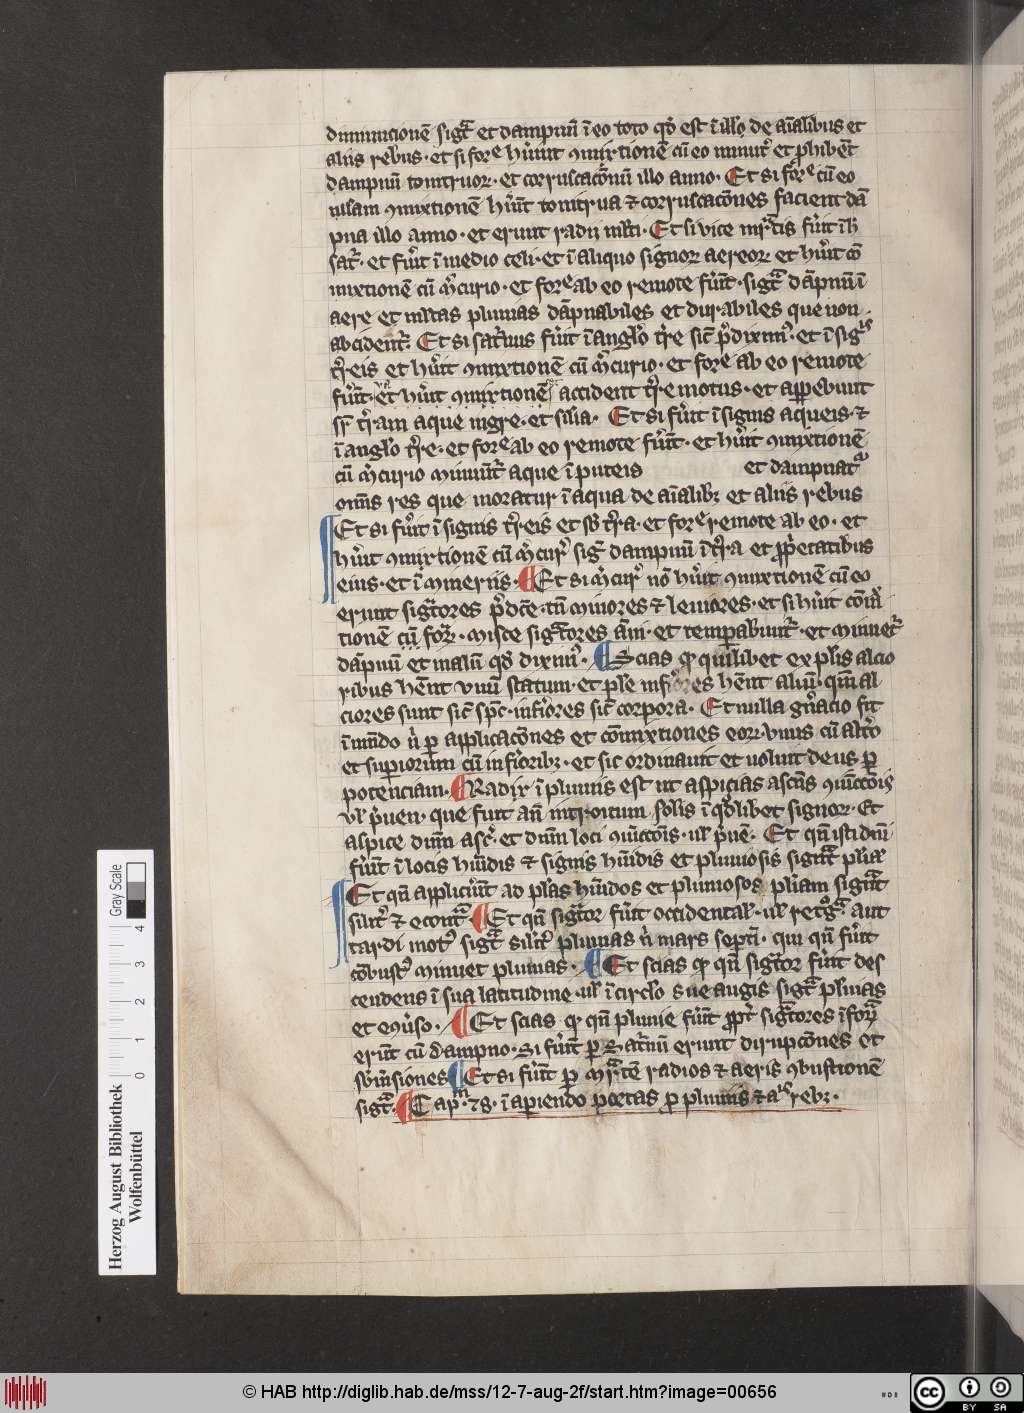 diminucionē sigᵗ et dampnū ī eo toto qđ est ī illo de aīalibus et
aliis rebus · et si fore hūint ɔmixtionē cū eo minuit et phibēt
dampnū tonitruoꝝ · et corruscacōnū illo anno · Et si fore cū eo
nllam ɔmixtionē hūnt tonitrua ⁊ corruscacōnes facient dā
pna illo anno · et erunt radii mlti · Et si vice mrtis fūit ih
satr · et fūit ī medio celi · et ī aliquo signoꝝ aereoꝝ et hūit cō
mixtionē cū mcurio · et fore ab eo remote fūit · sigᵗ dāpnū ī
aere et mltas pluuias dāpnabiles et durabiles que non
abcident · Et si saturnus fūit ī anglo tre sic pdiximꝰ · et ī sigis
treis et hūit ɔmixtionē cū mcurio · et fore ab eo remote
fūit · hūit ɔmixtionē accident tre motus · et apparebunt
sr tram aque nigre · et silia · Et si fūit ī signis aqueis · ⁊
ī anglo tre · et fore ab eo remote fūit · et hūit ɔmixtionē
cū mcurio minuūt aque ī puteis et dampnatꝰ
oms res que moratur ī aqua de aīalibꝫ et aliis rebus
Et si fūit ī signis treis et sb tra · et fore remote ab eo · et
hūit ɔmixtionē cū mcurꝰ sig dampnū ī tra et ppetatibus
eius · et ī mineriis · Et si mcurꝰ nō hūit ɔmixtionē cū eo
erunt sigtores pdce · tn minores ⁊ leuiores · et si hūit cōmix
tionē cū foꝝ · misce sigtores āni · et temperabuntᵗ · et minuetᵗ
dāpnū et malū qđ diximꝰ · Scias qꝫ quilibet ex plis alcio
ribus hēnt vnū statum · et ple inferiores hēnt aliū · qm al
ciores sunt sic spc · inferiores sic corpora · Et nulla gnacio fit
ī mndo n p applicacōnes et cōmixtiones eoꝝ · vnus cū alto
et superiorum cū inferioribꝫ · et sic ordinauit et voluit deus p
potenciam · Radix ī pluuiis est ut aspicias ascns ɔiūctōis
vl puen · que fuit an introitum solis ī qdlibet signoꝝ · Et
aspice dnm asc · et dnm loci ɔiūctōis · vl pue · Et qn isti dni
fūit ī locis hūidis ⁊ signis hūidis et pluuiosis signt pluia
Et qn applicūit ad plas hūidos et pluuiosos pluiam signt
silit ⁊ econtᵃ · Et qn sigtor fūit occidental · vl retgᵃ aut
tardi motꝰ sigᵗ silit pluuias n mars septi · qui qn fūit
cōbustꝰ minuet pluuias · Et scias qꝫ qn sigtor fuit des
cendens ī sua latitudine · vl ī circlo sue augis sigᵗ pluias
et eɔuso · Et scias qꝫ qn pluuie fūit ppt sigtores īfoꝝ
erūt cū dampno · Si fūit p Satnū erunt dirupcōnes et
submsiones Et si fūit p mrtē radios ⁊ aeris ɔbustionē
sigᵗ · Capm · 78 · ī apiendo portas p pluuiis ⁊ aīs rebꝫ ·
Herzog August Bibliothek
Wolfenbüttel
0 1 2 3 4
Gray Scale
© HAB http://diglib.hab.de/mss/12-7-aug-2f/start.htm?image=00656
cc BY SA